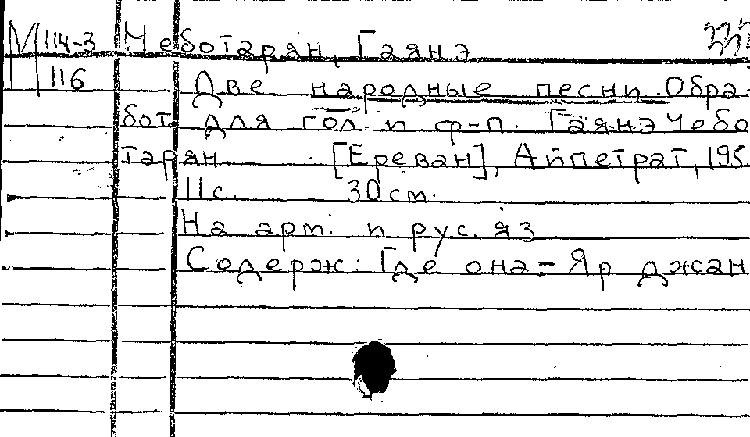 М 114-3 Чеботарян, Гаянэ
116 Две народные песни. Обра
бот. для гол. и ф-п. Гаянэ Чебо
тарян. [Ереван], Айпетрат, 195
11 с. 30 см.
На арм. и рус. яз
Содерж: Где она = Яр джан